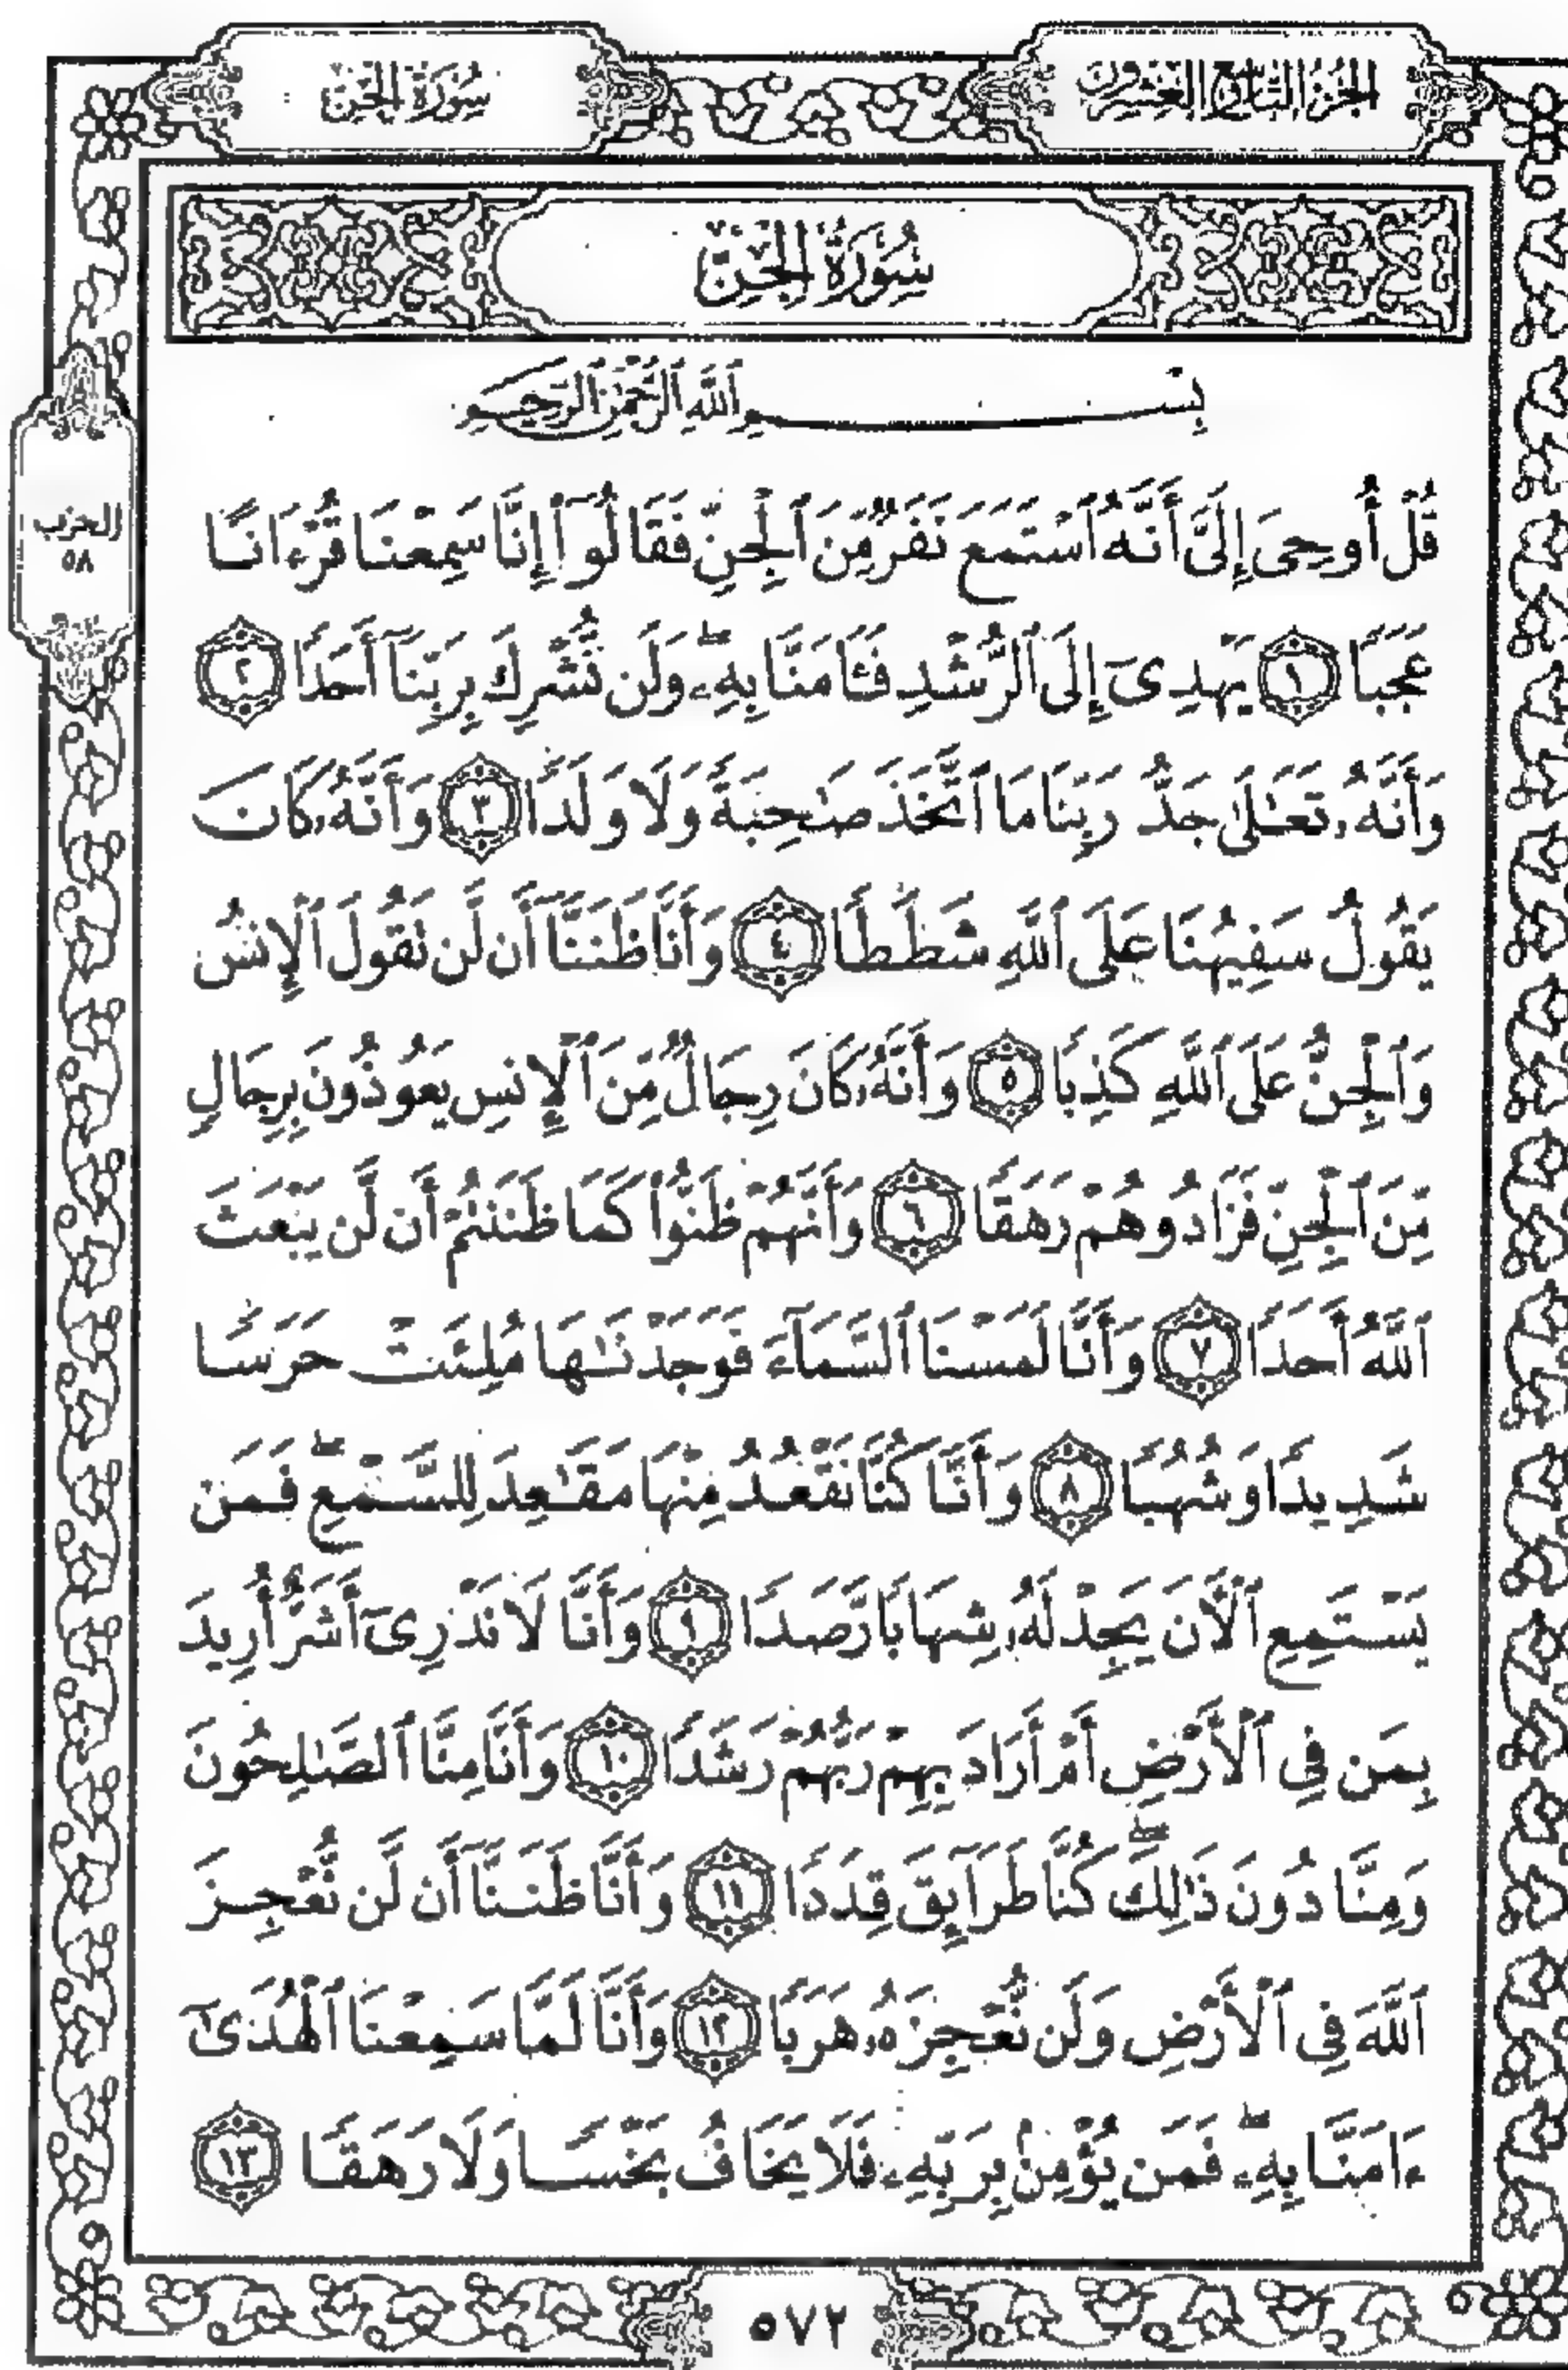 الجزء التاسع والعشرون
سورة الجن
سُورَةُ الجِنّ
بِسْمِ ٱللَّهِ ٱلرَّحْمَٰنِ ٱلرَّحِيمِ
الحزب
٥٨
قُلْ أُوحِىَ إِلَىَّ أَنَّهُ ٱسْتَمَعَ نَفَرٌ مِّنَ ٱلْجِنِّ فَقَالُوٓا۟ إِنَّا سَمِعْنَا قُرْءَانًا
عَجَبًا ١ يَهْدِىٓ إِلَى ٱلرُّشْدِ فَـَٔامَنَّا بِهِۦ ۖ وَلَن نُّشْرِكَ بِرَبِّنَآ أَحَدًا ٢
وَأَنَّهُۥ تَعَٰلَىٰ جَدُّ رَبِّنَا مَا ٱتَّخَذَ صَٰحِبَةً وَلَا وَلَدًا ٣ وَأَنَّهُۥ كَانَ
يَقُولُ سَفِيهُنَا عَلَى ٱللَّهِ شَطَطًا ٤ وَأَنَّا ظَنَنَّآ أَن لَّن تَقُولَ ٱلْإِنسُ
وَٱلْجِنُّ عَلَى ٱللَّهِ كَذِبًا ٥ وَأَنَّهُۥ كَانَ رِجَالٌ مِّنَ ٱلْإِنسِ يَعُوذُونَ بِرِجَالٍ
مِّنَ ٱلْجِنِّ فَزَادُوهُمْ رَهَقًا ٦ وَأَنَّهُمْ ظَنُّوا۟ كَمَا ظَنَنتُمْ أَن لَّن يَبْعَثَ
ٱللَّهُ أَحَدًا ٧ وَأَنَّا لَمَسْنَا ٱلسَّمَآءَ فَوَجَدْنَٰهَا مُلِئَتْ حَرَسًا
شَدِيدًا وَشُهُبًا ٨ وَأَنَّا كُنَّا نَقْعُدُ مِنْهَا مَقَٰعِدَ لِلسَّمْعِ ۖ فَمَن
يَسْتَمِعِ ٱلْـَٔانَ يَجِدْ لَهُۥ شِهَابًا رَّصَدًا ٩ وَأَنَّا لَا نَدْرِىٓ أَشَرٌّ أُرِيدَ
بِمَن فِى ٱلْأَرْضِ أَمْ أَرَادَ بِهِمْ رَبُّهُمْ رَشَدًا ١٠ وَأَنَّا مِنَّا ٱلصَّٰلِحُونَ
وَمِنَّا دُونَ ذَٰلِكَ ۖ كُنَّا طَرَآئِقَ قِدَدًا ١١ وَأَنَّا ظَنَنَّآ أَن لَّن نُّعْجِزَ
ٱللَّهَ فِى ٱلْأَرْضِ وَلَن نُّعْجِزَهُۥ هَرَبًا ١٢ وَأَنَّا لَمَّا سَمِعْنَا ٱلْهُدَىٰٓ
ءَامَنَّا بِهِۦ ۖ فَمَن يُؤْمِنۢ بِرَبِّهِۦ فَلَا يَخَافُ بَخْسًا وَلَا رَهَقًا ١٣
٥٧٢